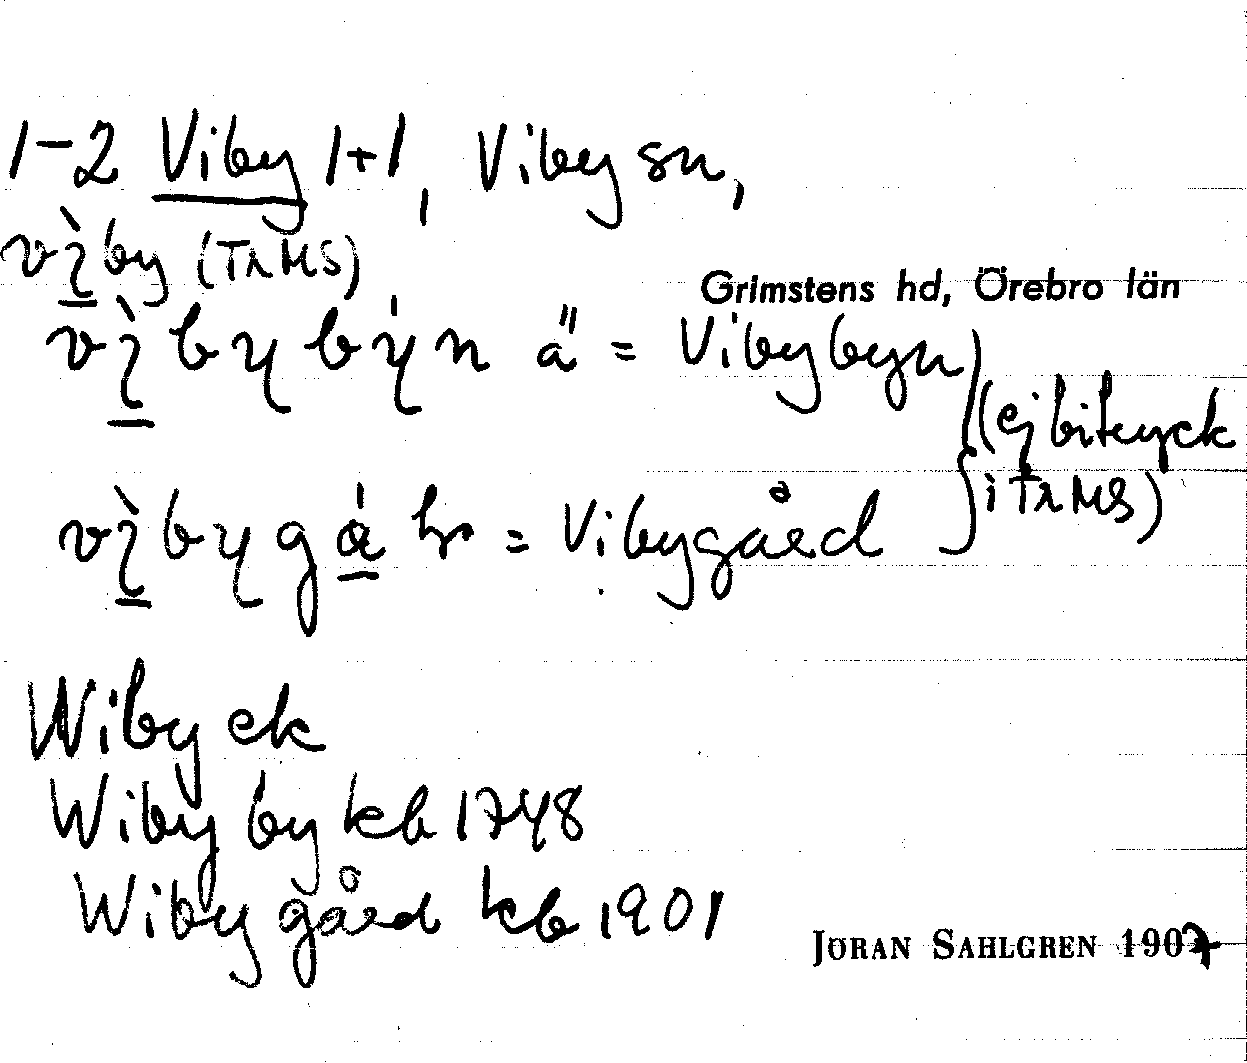 1-2 Viby 1+1, Viby sn,
vı̀by (TRMS)
Grimstens hd, Örebro län
vı̀bybýn ä = Vibybyn
(ej bitryck
vı̀bygá = Vibygård
i TRMS)
Wiby ek
Wiby by kb 1748
Wiby gård kb 1901
JÖRAN SAHLGREN 1907